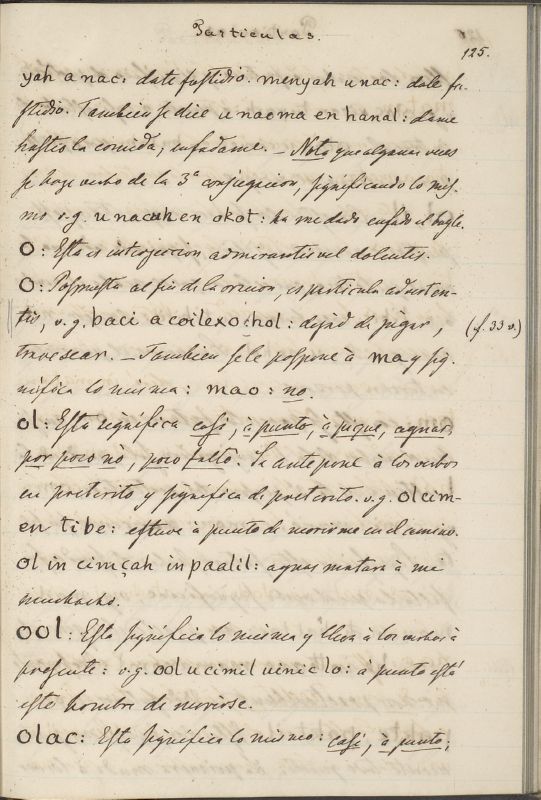 Particulas.
125.
yah a nac: date fastidio. menyah u nac: dale fa-
stidio. Tambien se dice u nacma en hanal: dame
hastio la comida, enfadame. — Nota que algunas veces
se haze verbo de la 3ª conjugacion, significando lo mis-
mo v.g. u nacah en okot: ha me dado enfado el bayle.
O: Esta es interjeccion admirantis vel dolentis.
O: Pospuesta al fin de la oracion, es particula adverten-
tis, v.g. baci a coilex o hol: dejad de jugar, (f. 33 v.)
travesear. — Tambien se le pospone à ma y sig-
nifica lo mismo: mao: no.
ol: Esta significa casi, à punto, à pique, apenas,
por poco nò, poco faltò. Se antepone à los verbos
en preterito y significa de preterito. v.g. ol cim-
en ti be: estuve à punto de morirme en el camino.
ol in cimçah in paalil: apenas matara à mi
muchacho.
ool: Esta significa lo mismo y lleva à los verbos à
presente: v.g. ool u cimil uinic lo: à punto està
este hombre de morirse.
olac: Esta significa lo mismo: casi, à punto;